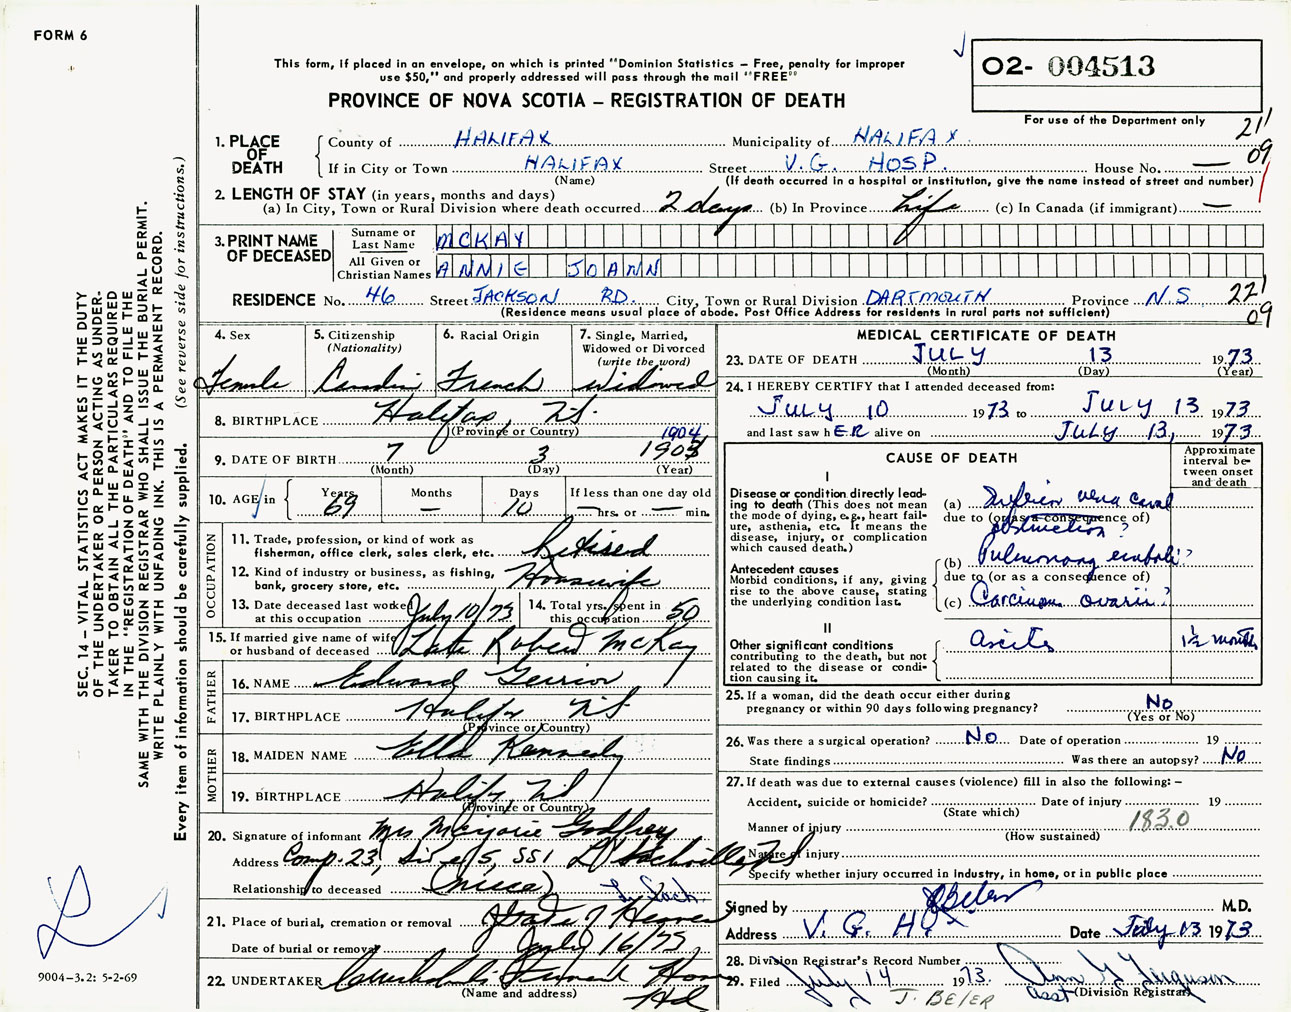 FORM 6
This form, if placed in an envelope, on which is printed "Dominion Statistics – Free, penalty for improper
use $50," and properly addressed will pass through the mail "FREE"
PROVINCE OF NOVA SCOTIA – REGISTRATION OF DEATH
O2- 004513
For use of the Department only
21
09
1. PLACE OF DEATH
County of HALIFAX Municipality of HALIFAX
If in City or Town HALIFAX Street V.G. HOSP. House No. —
(Name) (If death occurred in a hospital or institution, give the name instead of street and number)
2. LENGTH OF STAY (in years, months and days)
(a) In City, Town or Rural Division where death occurred 2 days (b) In Province Life (c) In Canada (if immigrant) —
3. PRINT NAME OF DECEASED
Surname or Last Name MCKAY
All Given or Christian Names ANNIE JOANN
RESIDENCE No. 46 Street JACKSON RD. City, Town or Rural Division DARTMOUTH Province N.S
(Residence means usual place of abode. Post Office Address for residents in rural parts not sufficient)
22
09
SEC. 14 – VITAL STATISTICS ACT MAKES IT THE DUTY
OF THE UNDERTAKER OR PERSON ACTING AS UNDER-
TAKER TO OBTAIN ALL THE PARTICULARS REQUIRED
IN THE "REGISTRATION OF DEATH" AND TO FILE THE
SAME WITH THE DIVISION REGISTRAR WHO SHALL ISSUE THE BURIAL PERMIT.
WRITE PLAINLY WITH UNFADING INK. THIS IS A PERMANENT RECORD.
Every item of information should be carefully supplied. (See reverse side for instructions.)
4. Sex
Female
5. Citizenship
(Nationality)
6. Racial Origin
French
7. Single, Married,
Widowed or Divorced
(write the word)
Widowed
8. BIRTHPLACE Halifax, N.S.
(Province or Country)
1904
9. DATE OF BIRTH 7 3
(Month) (Day) (Year)
10. AGE in
Years Months Days If less than one day old
69 — 10 — hrs. or — min.
OCCUPATION
11. Trade, profession or kind of work as
fisherman, office clerk, sales clerk, etc. Retired
12. Kind of industry or business, as fishing,
bank, grocery store, etc. Housewife
13. Date deceased last worked
at this occupation July 10/73
14. Total yrs. spent in
this occupation 50
15. If married give name of wife
or husband of deceased Late Robert McKay
FATHER
16. NAME Edward
17. BIRTHPLACE Halifax NS
(Province or Country)
MOTHER
18. MAIDEN NAME Ella Kennedy
19. BIRTHPLACE Halifax NS
(Province or Country)
20. Signature of informant Mrs Marjorie Godfrey
Address Comp. 23, Site 15, SS1 L. Sackville, NS
Relationship to deceased (niece) L. Sack.
21. Place of burial, cremation or removal Gate of Heaven
Date of burial or removal July 16/73
22. UNDERTAKER Funeral Home
(Name and address)
Hfx
9004-3.2: 5-2-69
MEDICAL CERTIFICATE OF DEATH
23. DATE OF DEATH JULY 13 1973
(Month) (Day) (Year)
24. I HEREBY CERTIFY that I attended deceased from:
JULY 10 1973 to JULY 13 1973
and last saw hER alive on JULY 13, 1973
CAUSE OF DEATH
Approximate
interval be-
tween onset
and death
I
Disease or condition directly lead-
ing to death (This does not mean
the mode of dying, e.g., heart fail-
ure, asthenia, etc. It means the
disease, injury, or complication
which caused death.)
(a) Inferior vena caval
due to (or as a consequence of)
obstruction?
Antecedent causes
Morbid conditions, if any, giving
rise to the above cause, stating
the underlying condition last.
(b) Pulmonary emboli?
due to (or as a consequence of)
(c) Carcinoma ovarii?
II
Other significant conditions
contributing to the death, but not
related to the disease or condi-
tion causing it.
ascites 1½ months
25. If a woman, did the death occur either during
pregnancy or within 90 days following pregnancy? No
(Yes or No)
26. Was there a surgical operation? NO Date of operation 19
State findings Was there an autopsy? NO
27. If death was due to external causes (violence) fill in also the following: –
Accident, suicide or homicide? Date of injury 19
(State which)
Manner of injury 183.0
(How sustained)
Nature of injury
Specify whether injury occurred in industry, in home, or in public place
Signed by J Beler M.D.
Address V. G. H. Date July 13 1973
28. Division Registrar's Record Number
29. Filed July 14 1973. Ann G Ferguson
J. BELER Asst (Division Registrar)